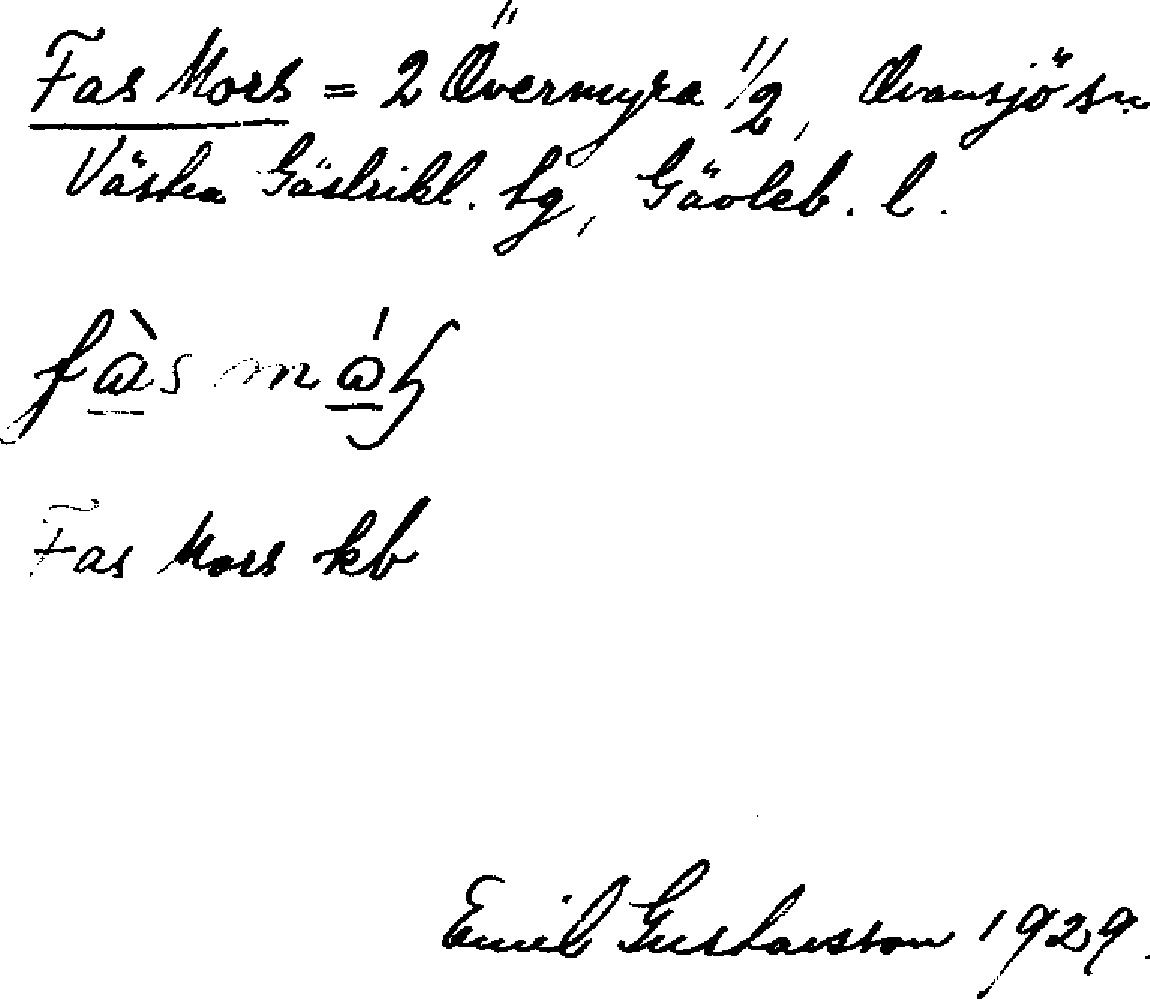 Fas Mors = 2 Övermyra 1/2, Ovansjö sn
Västra Gästrikl. hg, Gävleb. l.
Fas Mors kb
Emil Gustavsson 1929.